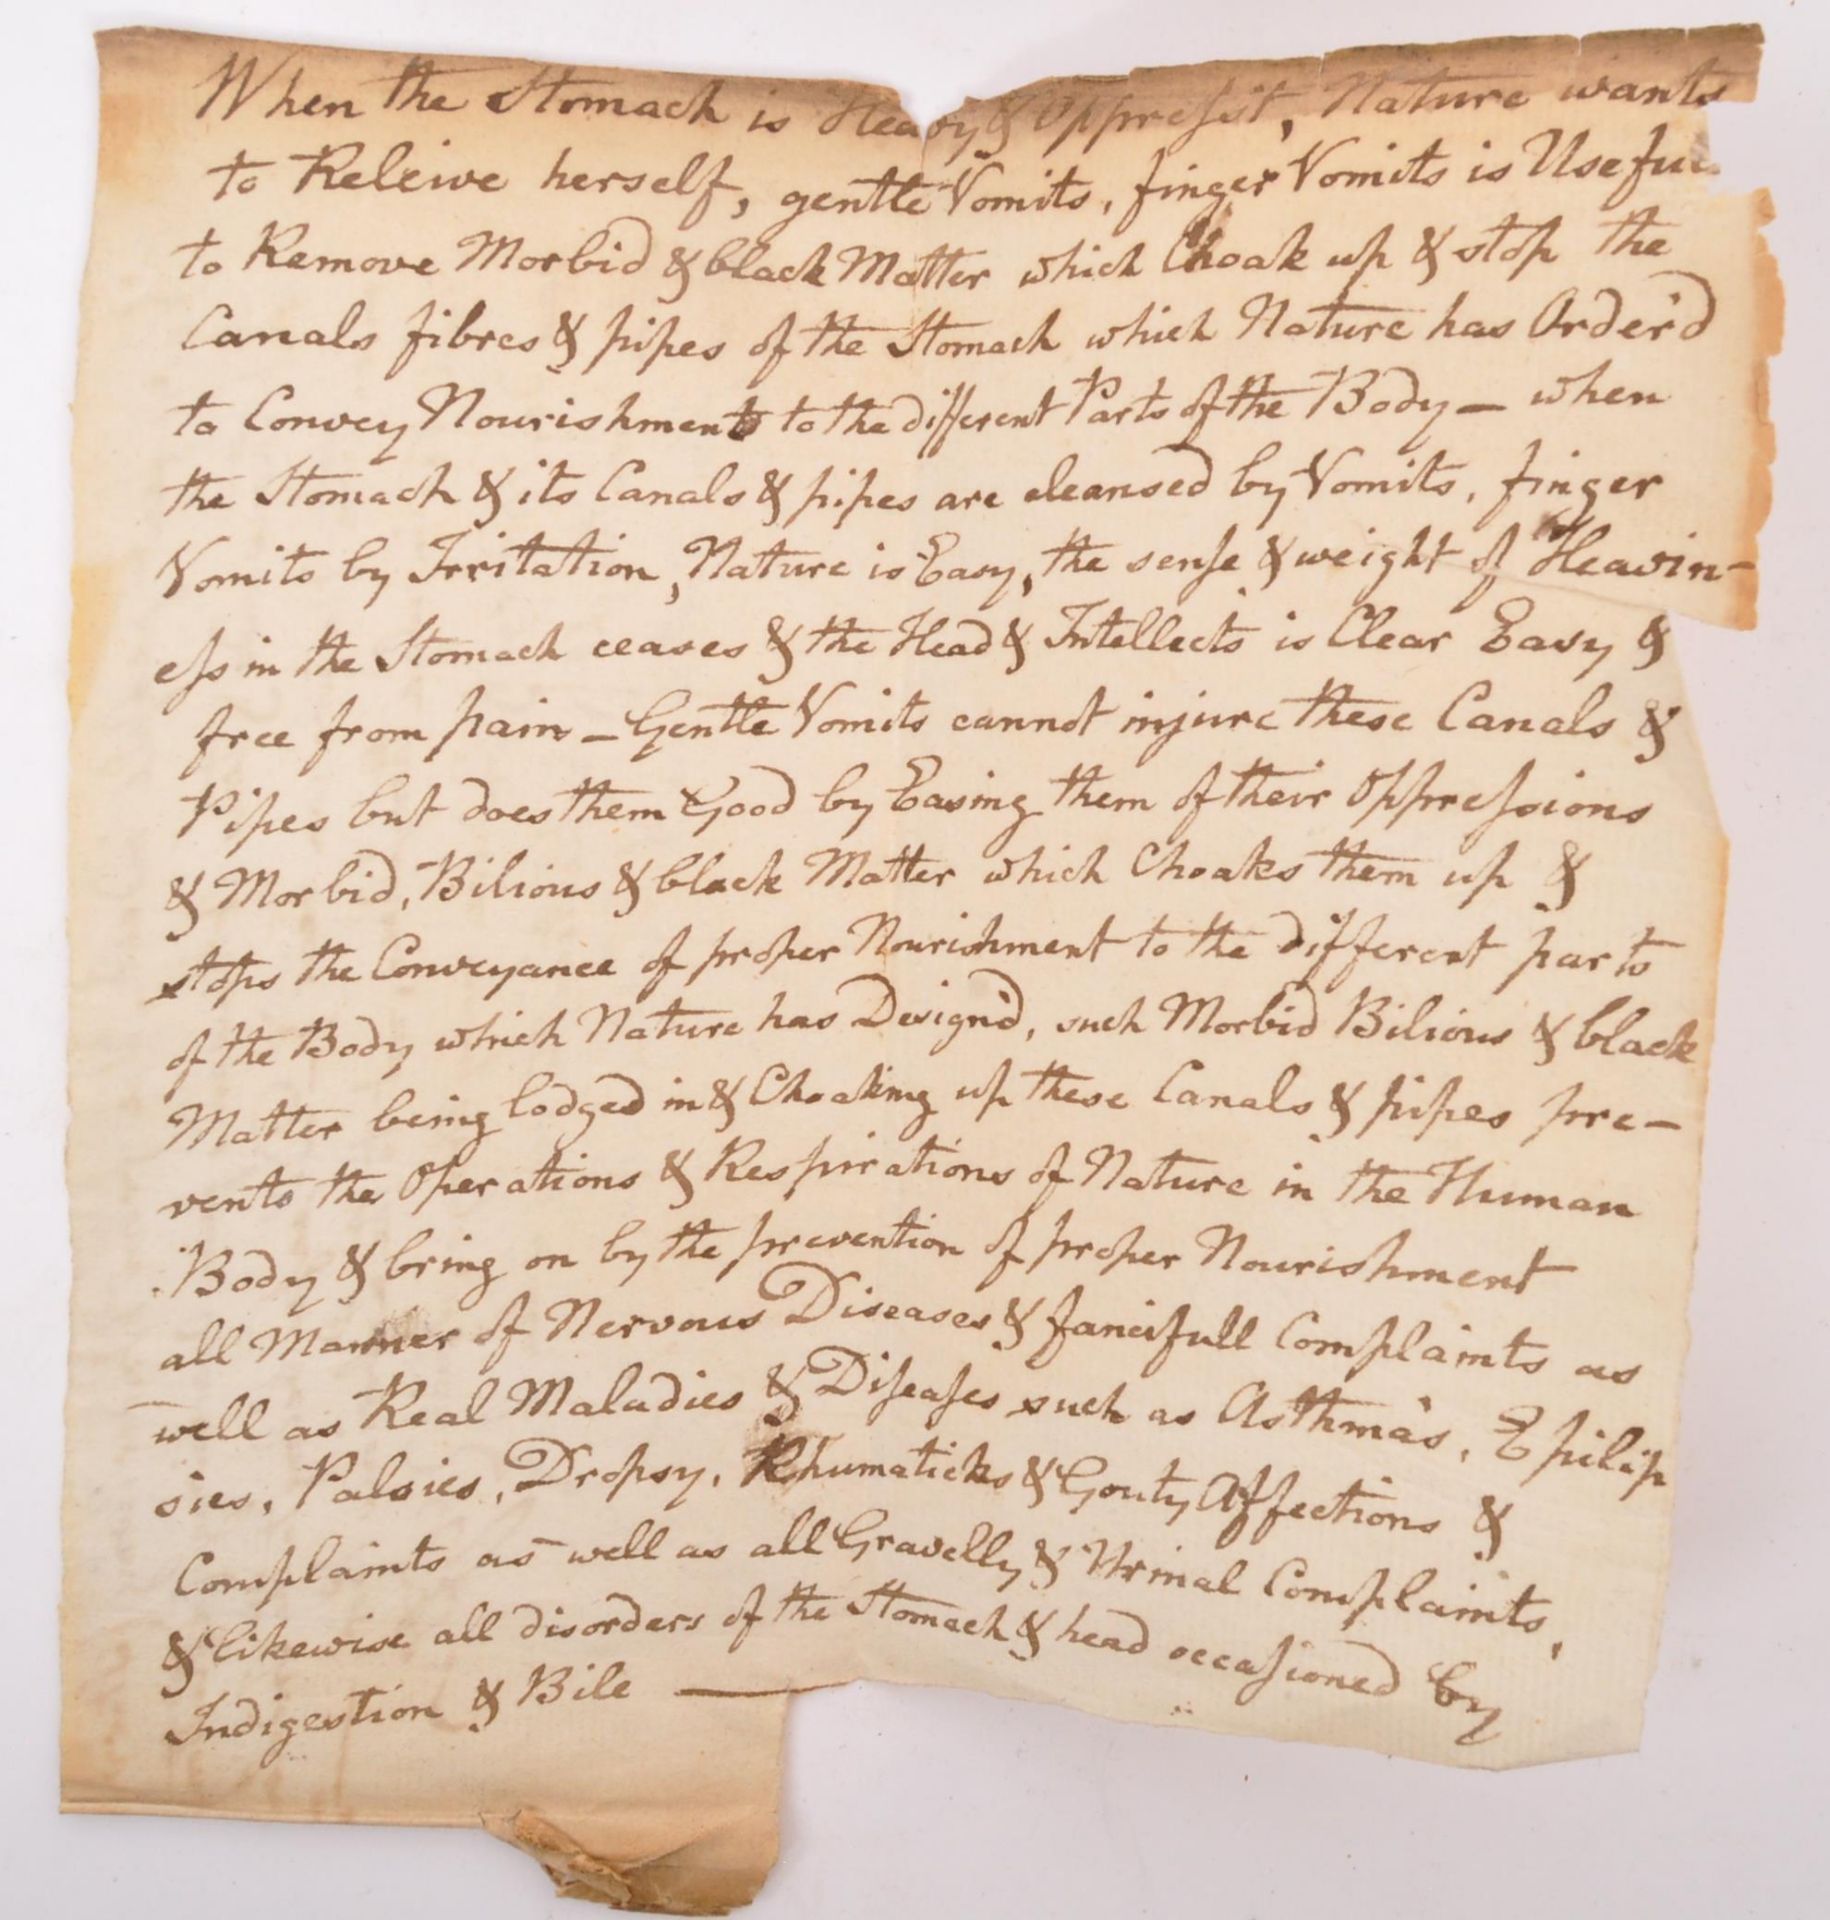 When the Stomach is Heavy & Oppreſst, Nature wants
to Releive herself, gentle Vomits, finger Vomits is Useful
to Remove Morbid & black Matter which Choak up & stop the
Canals fibres & pipes of the Stomach which Nature has Order'd
to Convey Nourishment to the different Parts of the Body — when
the Stomach & its Canals & pipes are cleansed by Vomits, finger
Vomits by Irritation, Nature is Easy, the senſe & weight of Heavin-
eſs in the Stomach ceases & the Head & Intellects is Clear Easy &
free from pain — Gentle Vomits cannot injure these Canals &
Pipes but does them Good by Easing them of their Oppreſsions
& Morbid, Bilious & black Matter which Choaks them up &
stops the Conveyance of proper Nourishment to the different parts
of the Body which Nature has Design'd, such Morbid Bilious & black
Matter being lodged in & Choaking up these Canals & pipes pre-
vents the Operations & Respirations of Nature in the Human
Body & bring on by the prevention of proper Nourishment
all Manner of Nervous Diseases & fancifull Complaints as
well as Real Maladies & Diſeaſes such as Asthma's, Epilip
sies, Palsies, Dropsy, Rhumaticks & Gouty Affections &
Complaints as well as all Gravelly & Urinal Complaints,
& likewise all disorders of the Stomach & head occaſioned by
Indigestion & Bile —